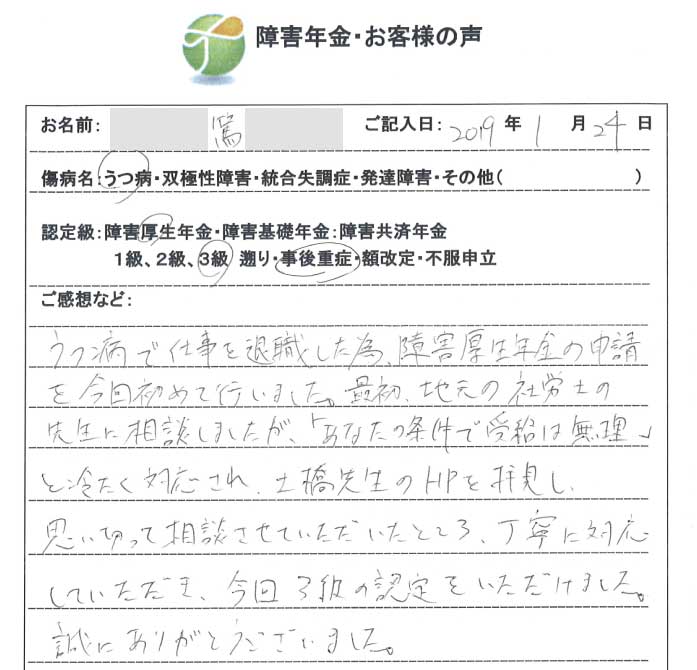 障害年金・お客様の声
お名前: 篤 ご記入日: 2019 年 1 月 24 日
傷病名:うつ病・双極性障害・統合失調症・発達障害・その他( )
認定級:障害厚生年金・障害基礎年金:障害共済年金
1級、2級、3級 遡り・事後重症・額改定・不服申立
ご感想など:
うつ病で仕事を退職した為、障害厚生年金の申請
を今回初めて行いました。最初、地元の社労士の
先生に相談しましたが、「あなたの条件で受給は無理」
と冷たく対応され、土橋先生のHPを拝見し、
思い切って相談させていただいたところ、丁寧に対応
していただき、今回3級の認定をいただけました。
誠にありがとうございました。